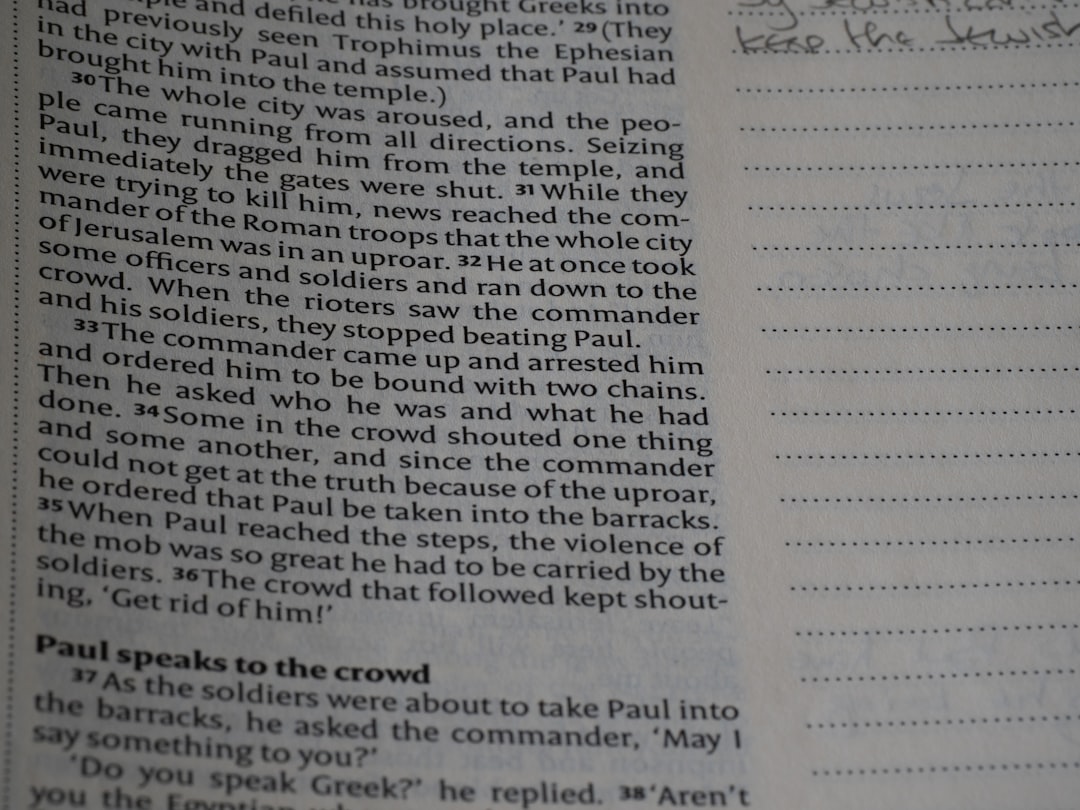 has brought Greeks into
and defiled this holy place.’ 29 (They
had previously seen Trophimus the Ephesian
in the city with Paul and assumed that Paul had
brought him into the temple.)
30 The whole city was aroused, and the peo-
ple came running from all directions. Seizing
Paul, they dragged him from the temple, and
immediately the gates were shut. 31 While they
were trying to kill him, news reached the com-
mander of the Roman troops that the whole city
of Jerusalem was in an uproar. 32 He at once took
some officers and soldiers and ran down to the
crowd. When the rioters saw the commander
and his soldiers, they stopped beating Paul.
33 The commander came up and arrested him
and ordered him to be bound with two chains.
Then he asked who he was and what he had
done. 34 Some in the crowd shouted one thing
and some another, and since the commander
could not get at the truth because of the uproar,
he ordered that Paul be taken into the barracks.
35 When Paul reached the steps, the violence of
the mob was so great he had to be carried by the
soldiers. 36 The crowd that followed kept shout-
ing, ‘Get rid of him!’
Paul speaks to the crowd
37 As the soldiers were about to take Paul into
the barracks, he asked the commander, ‘May I
say something to you?’
‘Do you speak Greek?’ he replied. 38 ‘Aren’t
you the Egyptian
keep the Jewish